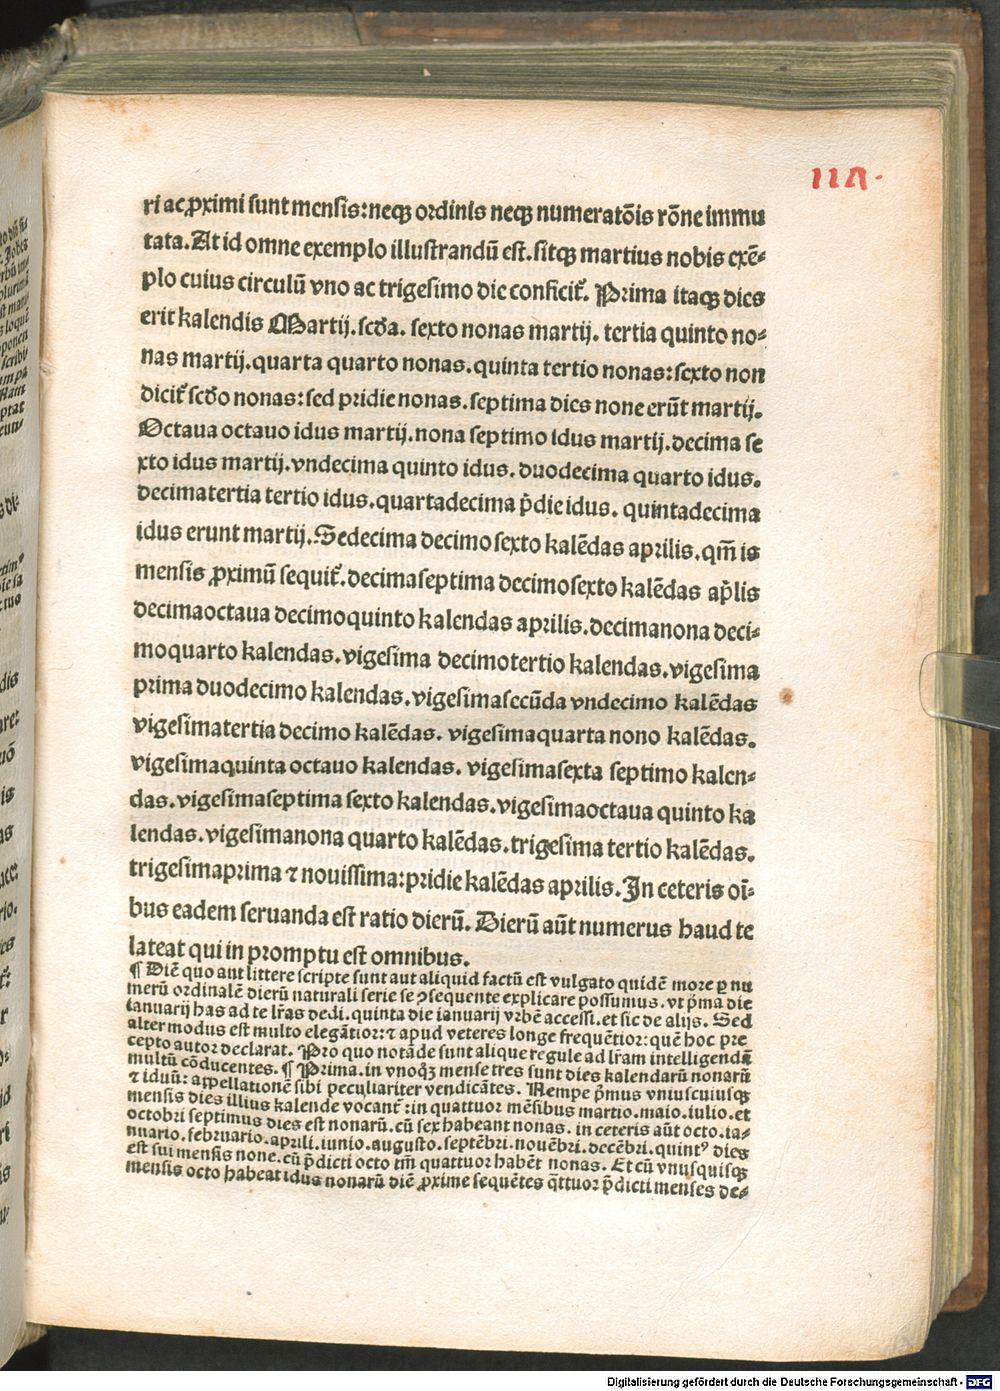 117.
ri ac ꝓximi sunt mensis: neqꝫ ordinis neqꝫ numeratōis rōne immu
tata. At id omne exemplo illustrandū est. sitqꝫ martius nobis exē-
plo cuius circulū vno ac trigesimo die conficit᷑. Prima itaqꝫ dies
erit kalendis Martij. scďa. sexto nonas martij. tertia quinto no-
nas martij. quarta quarto nonas. quinta tertio nonas: sexto non
dicit᷑ scďo nonas: sed pridie nonas. septima dies none erūt martij.
Octaua octauo idus martij. nona septimo idus martij. decima se
xto idus martij. vndecima quinto idus. duodecima quarto idus.
decimatertia tertio idus. quartadecima p̄die idus. quintadecima
idus erunt martij. Sedecima decimo sexto kalēdas aprilis. qm̄ is
mensis ꝓximū sequit᷑. decimaseptima decimosexto kalēdas ap̄lis
decimaoctaua decimoquinto kalendas aprilis. decimanona deci-
moquarto kalendas. vigesima decimotertio kalendas. vigesima
prima duodecimo kalendas. vigesimasecūda vndecimo kalēdas
vigesimatertia decimo kalēdas. vigesimaquarta nono kalēdas.
vigesimaquinta octauo kalendas. vigesimasexta septimo kalen-
das. vigesimaseptima sexto kalendas. vigesimaoctaua quinto ka
lendas. vigesimanona quarto kalēdas. trigesima tertio kalēdas.
trigesimaprima ⁊ nouissima: pridie kalēdas aprilis. In ceteris oī-
bus eadem seruanda est ratio dierū. Dierū aūt numerus haud te
lateat qui in promptu est omnibus.
¶ Diē quo aut littere scripte sunt aut aliquid factū est vulgato quidē more ꝑ nu
merū ordinalē dierū naturali serie se ꝯsequente explicare possumus. vt p̄ma die
ianuarij has ad te lr̄as dedi. quinta die ianuarij vrbē accessi. et sic de alijs. Sed
alter modus est multo elegātior: ⁊ apud veteres longe frequētior: quē hoc pre
cepto autor declarat. Pro quo notāde sunt alique regule ad lr̄am intelligendā
multū cōducentes. ¶ Prima. in vnoqꝫ mense tres sunt dies kalendarū nonarū
⁊ iduū: appellationē sibi peculiariter vendicātes. Nempe p̄mus vniuscuiusqꝫ
mensis dies illius kalende vocant᷑: in quattuor mēsibus martio. maio. iulio. et
octobri septimus dies est nonarū. cū sex habeant nonas. in ceteris aūt octo. ia-
nuario. februario. aprili. iunio. augusto. septēbri. nouēbri. decēbri. quintꝰ dies
est sui mensis none. cū p̄dicti octo tm̄ quattuor habēt nonas. Et cū vnusquisqꝫ
mensis octo habeat idus nonarū diē ꝓxime sequētes q̄ttuor p̄dicti menses de-
Digitalisierung gefördert durch die Deutsche Forschungsgemeinschaft - DFG